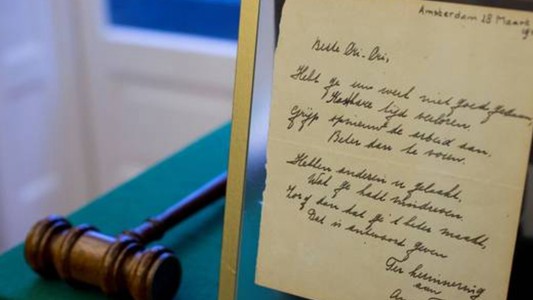 Amsterdam 28 Maart
19
Beste Cri-Cri,
Hebt ge uw werk niet goed gedaan,
Kostbare tijd verloren,
Grijp opnieuw de arbeid aan,
Beter dan te voren.
Hebben anderen u gelaakt,
Wat ge hadt misdreven.
Zorg dan dat ge 't beter maakt,
Dat is antwoord geven
Ter herinnering
aan